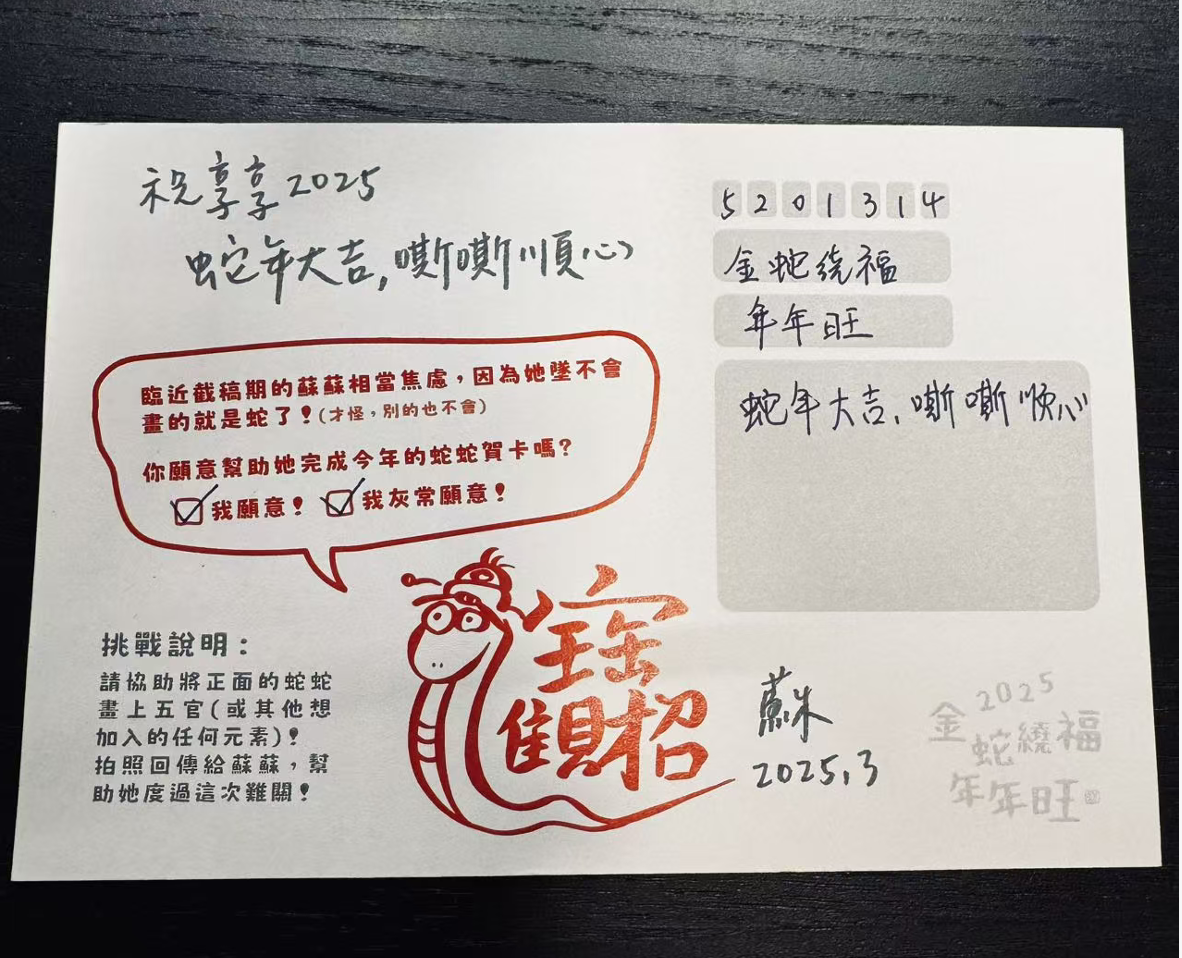 祝享享2025
蛇年大吉,嘶嘶順心
臨近截稿期的蘇蘇相當焦慮，因為她墜不會
畫的就是蛇了！(才怪，別的也不會)
你願意幫助她完成今年的蛇蛇賀卡嗎？
我願意！ 我灰常願意！
挑戰說明：
請協助將正面的蛇蛇
畫上五官(或其他想
加入的任何元素)！
拍照回傳給蘇蘇，幫
助她度過這次難關！
招財進寶
5201314
金蛇绕福
年年旺
蛇年大吉,嘶嘶顺心
蘇
2025.3
2025
金蛇繞福
年年旺